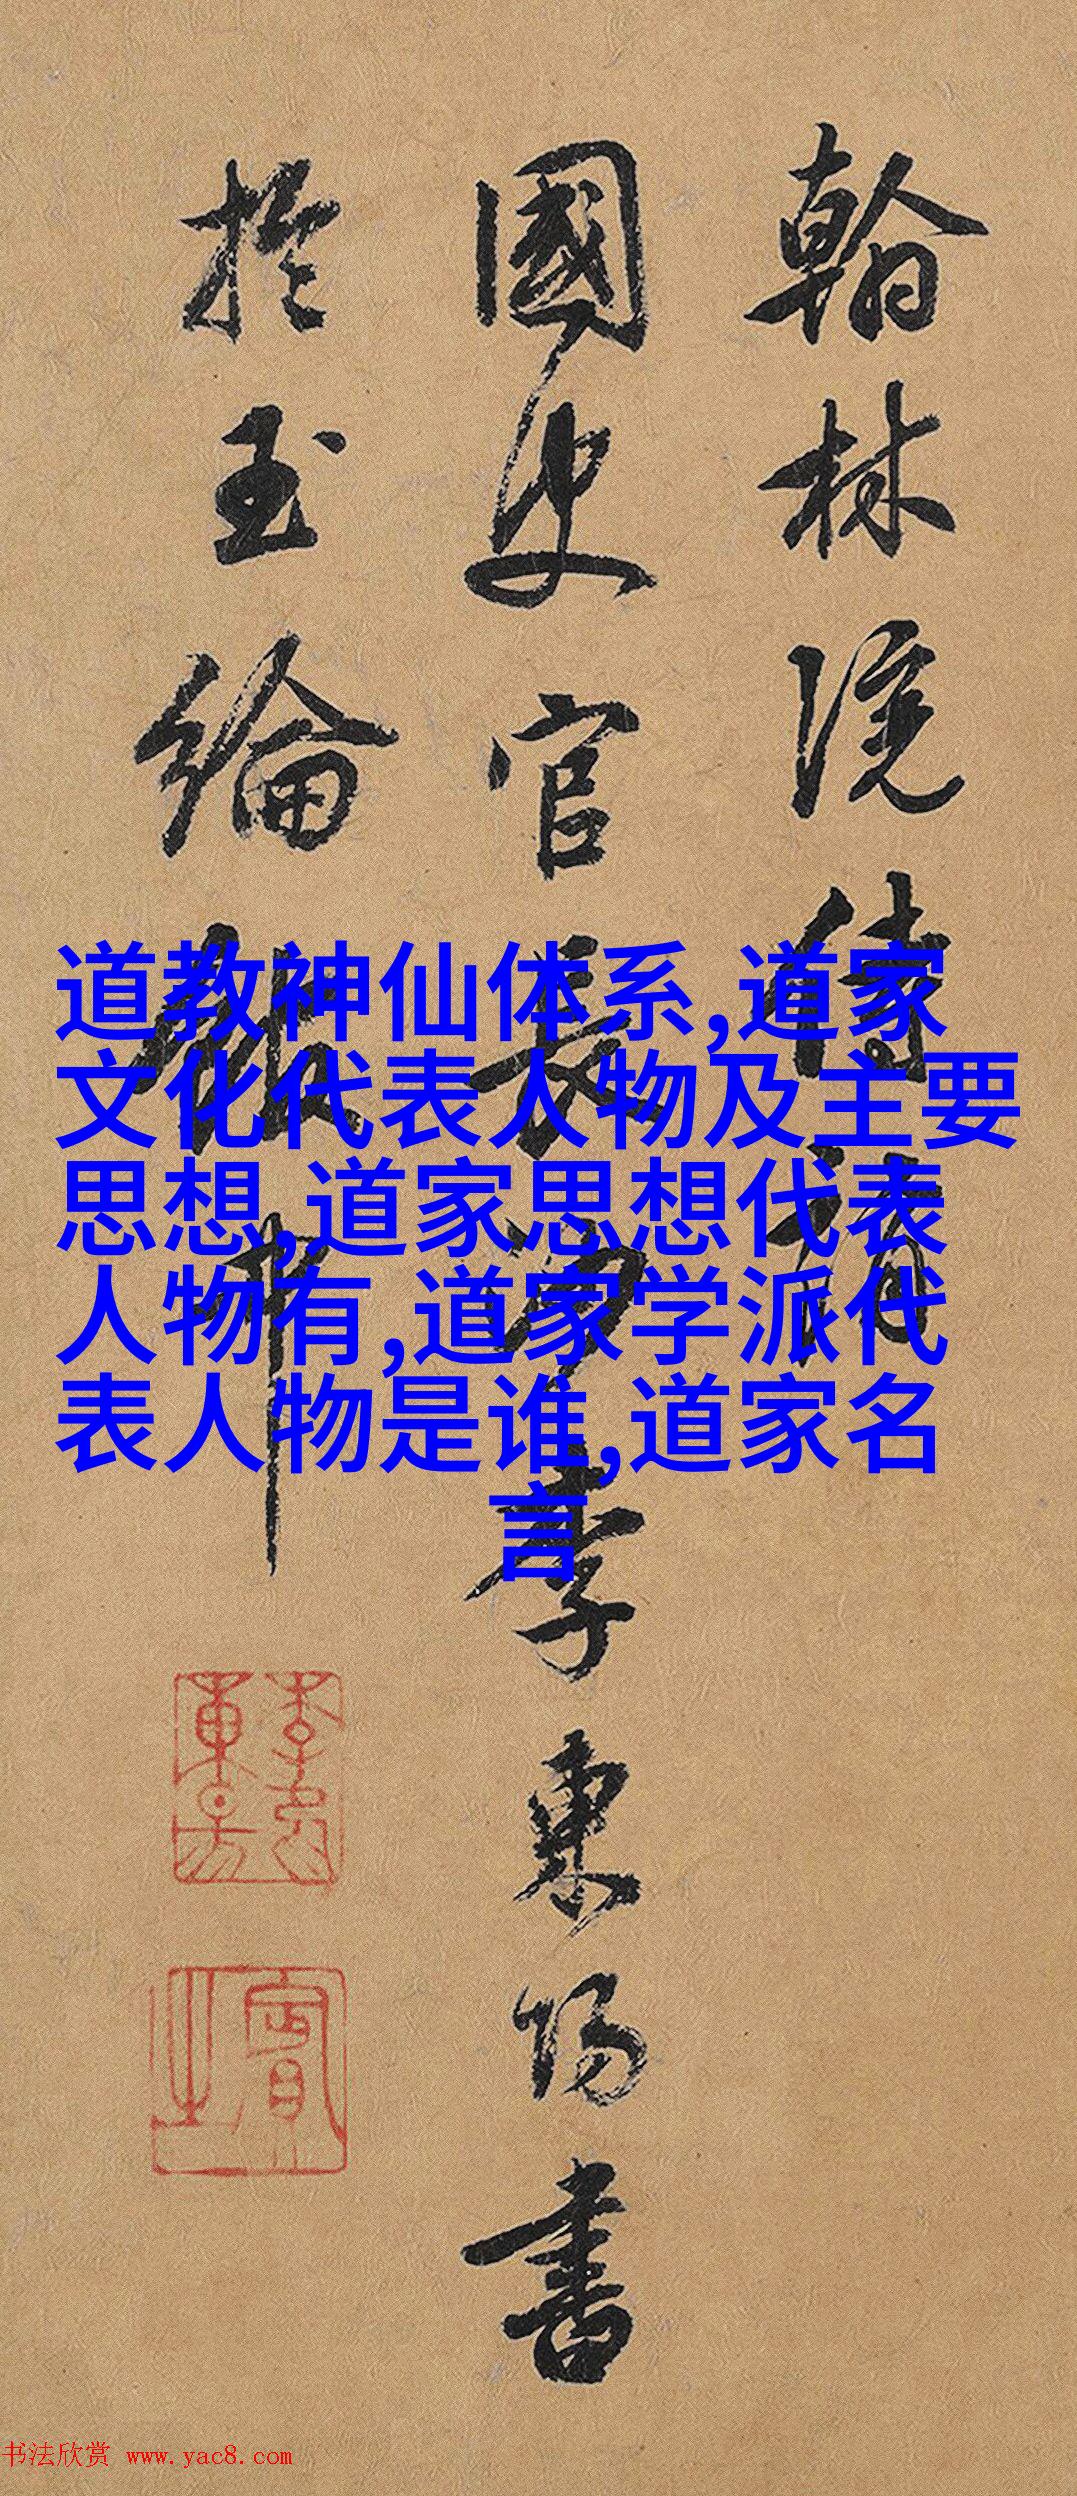 翰林院侍
國史官長沙李東陽書
於玉綸中
道教神仙体系,道家
文化代表人物及主要
思想,道家思想代表
人物有,道家学派代
表人物是谁,道家名
言
賓之
书法欣赏 www.yac8.com